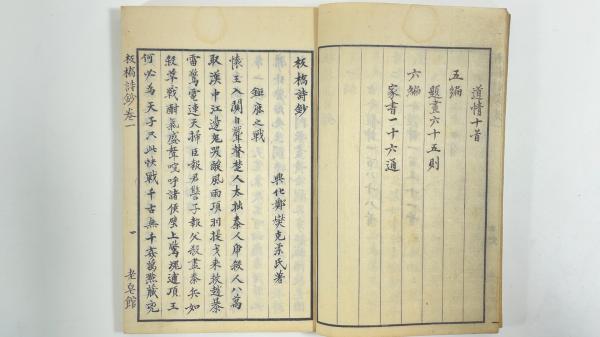 道情十首
五編
題畫六十五則
六編
家書一十六通
板橋詩鈔
興化鄭燮克柔氏著
鉅鹿之戰
懷王入關自聾瞽楚人太拙秦人虎殺人八萬
取漢中江邊鬼哭酸風雨項羽提戈來救趙暴
雷驚電連天掃臣報君讐子報父殺盡秦兵如
殺草戰酣氣盛聲喧呼諸侯壁上驚魂逋項王
何必為天子只此快戰千古無千奸萬黠藏兇
板橋詩鈔卷一
一
老皂館